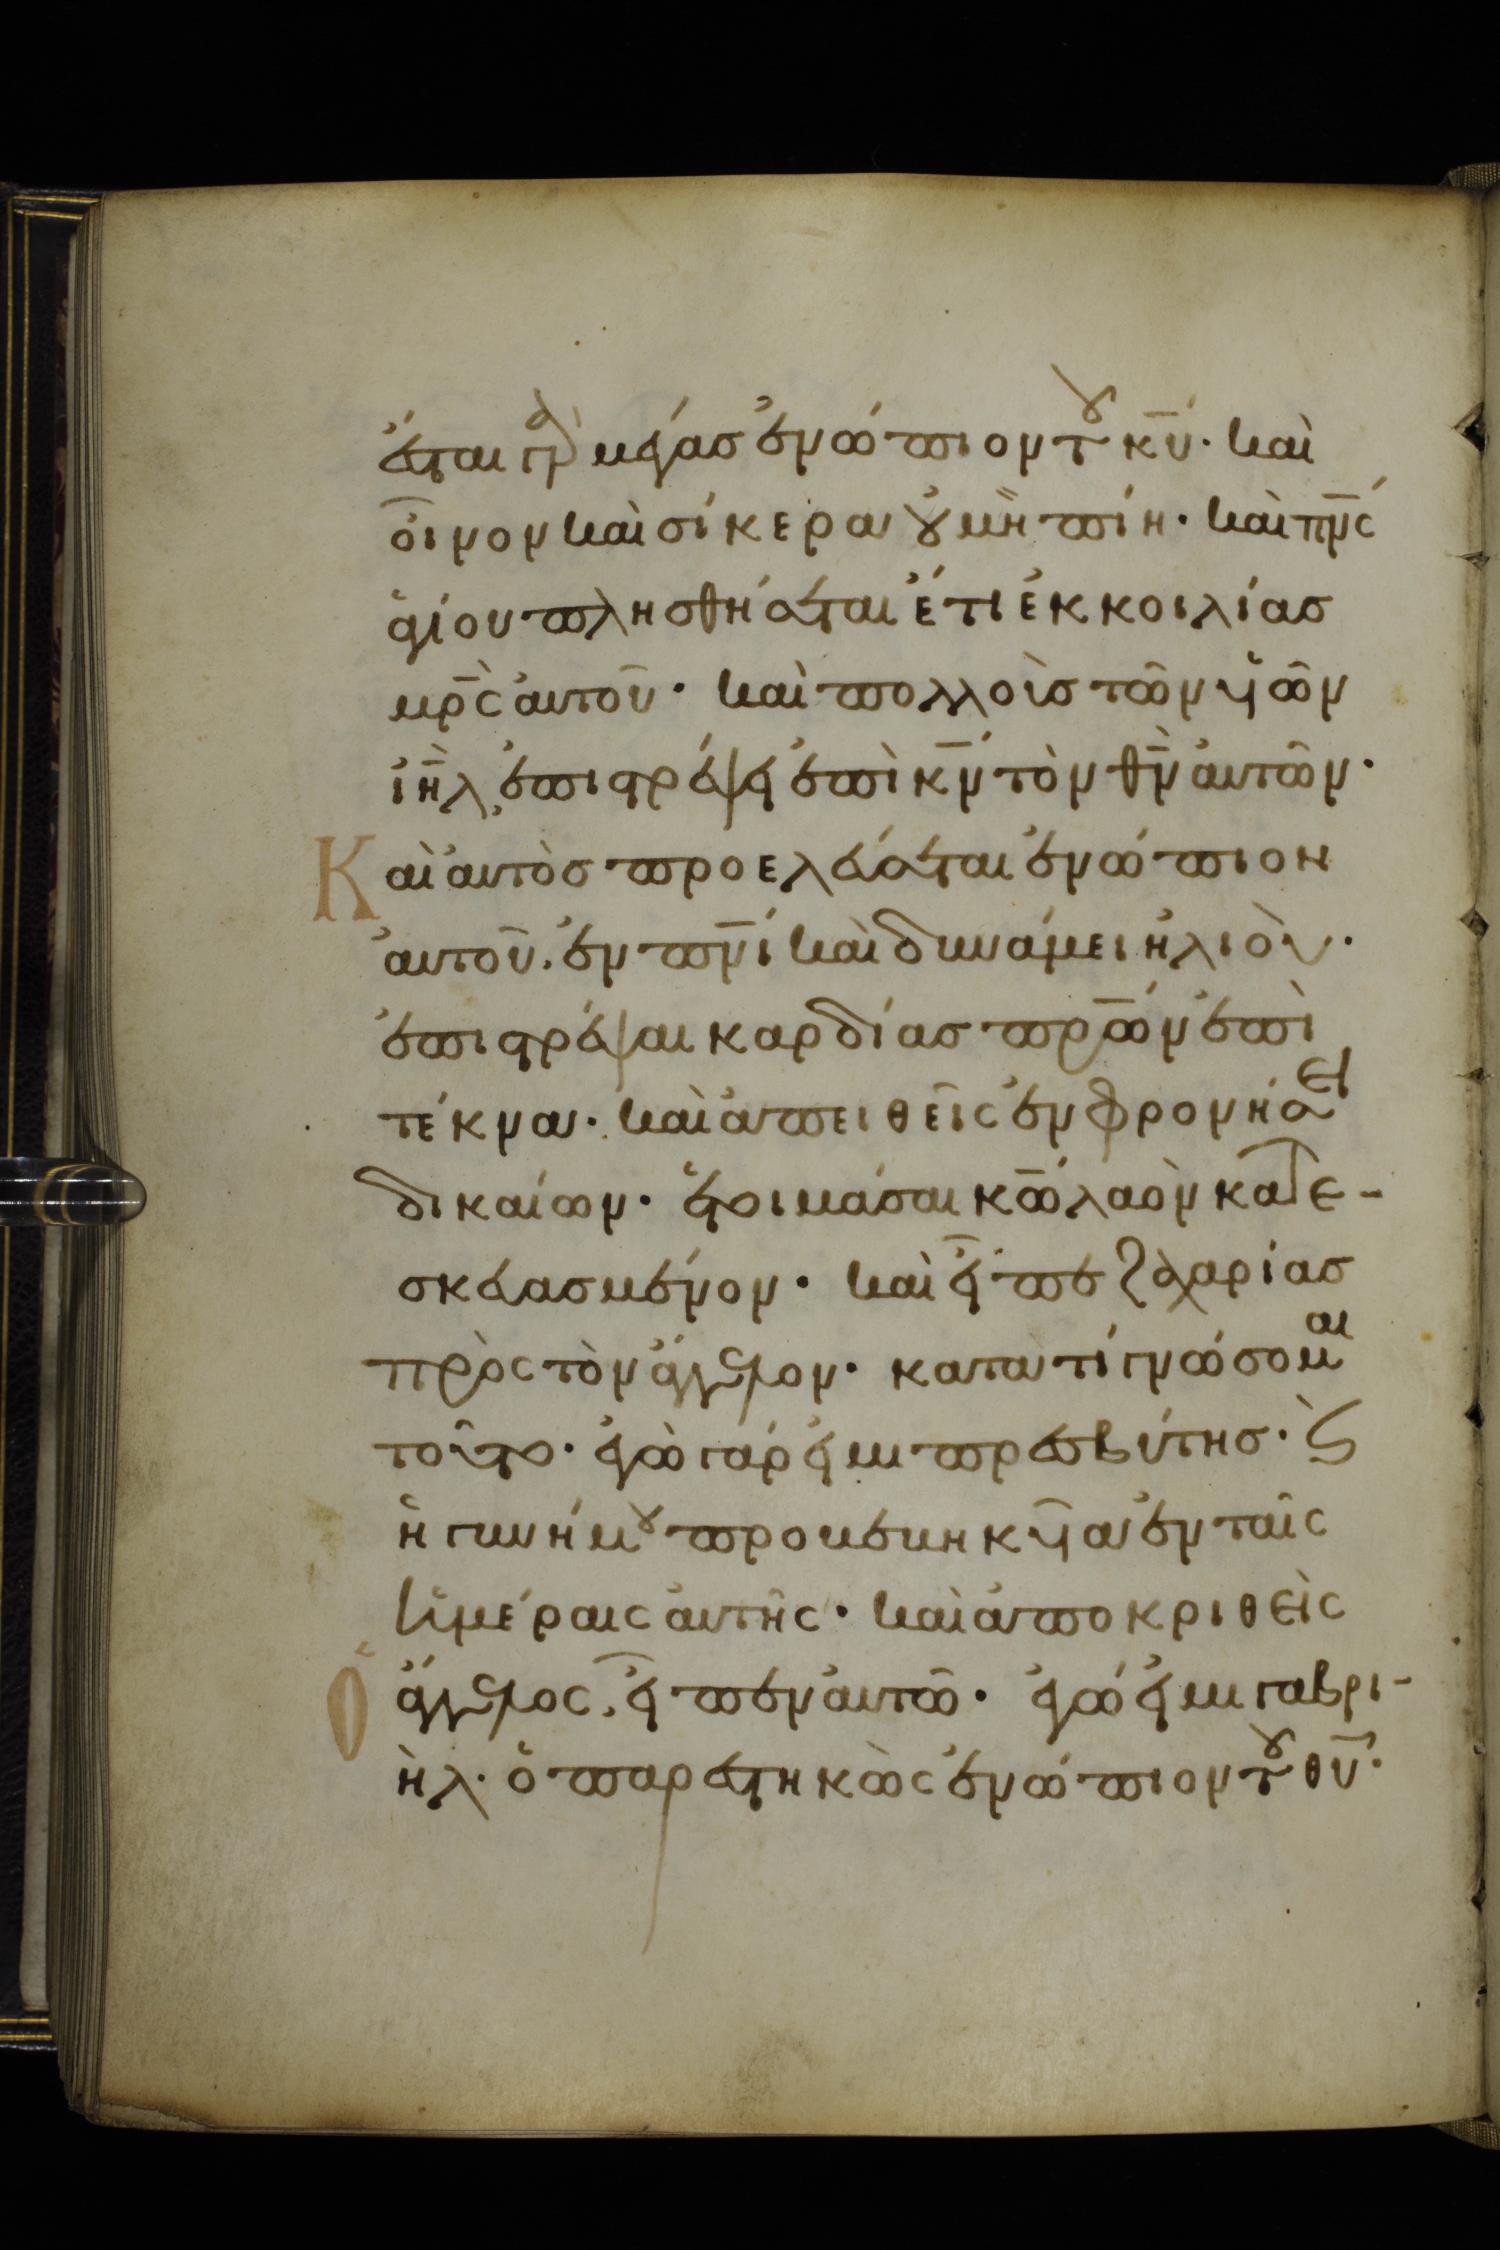 ἔσται γὰρ μέγας ἐνώπιον τοῦ κ̅υ̅· καὶ
οἶνον καὶ σίκερα οὐ μὴ πίη· καὶ π̅ν̅ς
ἁγίου πλησθήσεται ἔτι ἐκ κοιλίας
μ̅ρ̅ς αὐτοῦ· καὶ πολλοὺς τῶν υ̅ἱῶν
ἰ̅η̅λ̅, ἐπιστρέψει ἐπὶ κ̅ν̅ τὸν θ̅ν̅ αὐτῶν·
Καὶ αὐτὸς προελεύσεται ἐνώπιον
αὐτοῦ. ἐν π̅ν̅ι καὶ δυνάμει ἡλιοὺ·
ἐπιστρέψαι καρδίας π̅ρ̅ων ἐπὶ
τέκνα· καὶ ἀπειθεῖς ἐν φρονήσει
δικαίων· ἑτοιμάσαι κ̅ω̅ λαὸν κατε-
σκευασμένον· καὶ εἶπε ζαχαρίας
πρὸς τὸν ἄγγελον· κατα τί γνώσομαι
τοῦτο· ἐγὼ γάρ εἰμι πρεσβύτης· ϛ̀
ἡ γυνή μου προβεβηκυῖα ἐν ταῖς
ἡμέραις αὐτῆς· καὶ ἀποκριθεὶς
Ὁ ἄγγελος, εἶπεν αὐτῶ· ἐγώ εἰμι γαβρι-
ὴλ· ὁ παρεστηκὼς ἐνώπιον τοῦ θ̅υ̅·